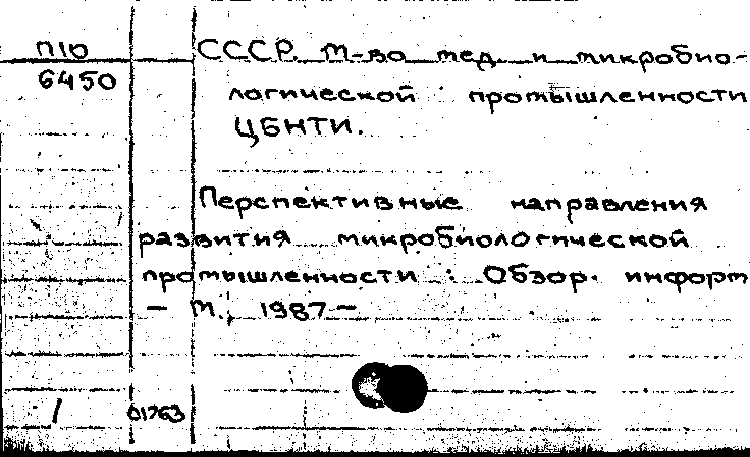 П10
6450
СССР. М-во мед. и микробио-
логической промышленности
ЦБНТИ.
Перспективные направления
развития микробиологической
промышленности : Обзор. информ
– М., 1987 –
/ 01763